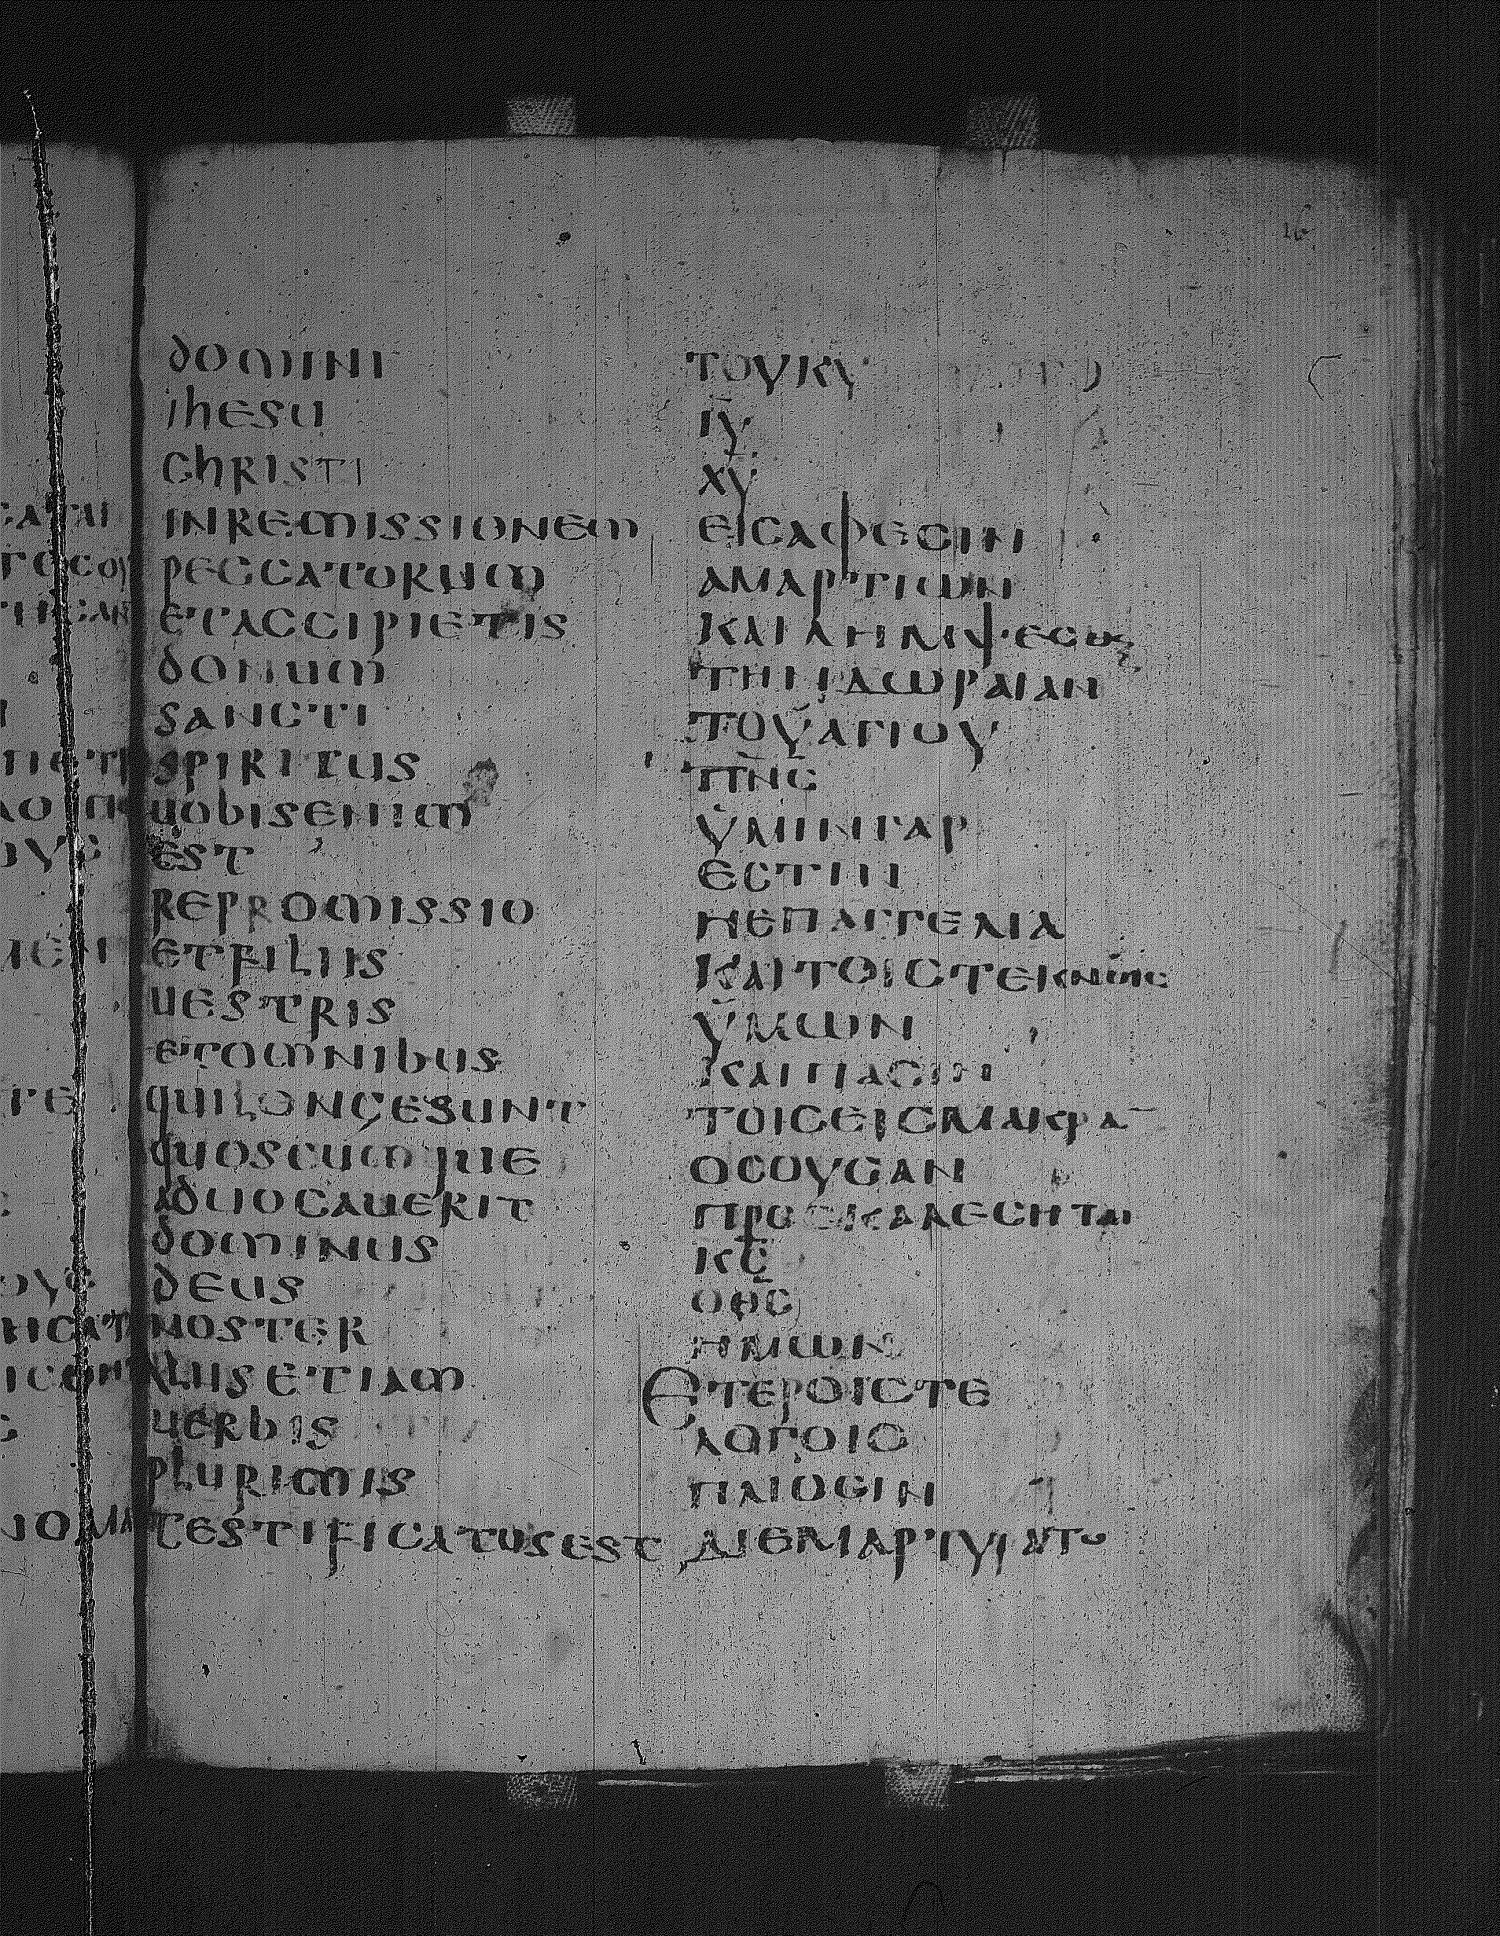 domini
ihesu
christi
inremissionem
peccatorum
etaccipietis
donum
sancti
spiritus
uobisenim
est
repromissio
etfiliis
uestris
etomnibus
quilongesunt
quoscumque
aduocauerit
dominus
deus
noster
aliisetiam
uerbis
plurimis
testificatusest
ΤΟΥΚΥ
ΙΥ
ΧΥ
ΕΙСΑΦΕСΙΝ
ΑΜΑΡΤΙΩΝ
ΚΑΙΛΗΜΨΕСΘΑΙ
ΤΗΝΔΩΡΑΙΑΝ
ΤΟΥΑΓΙΟΥ
ΠΝС
ΥΜΙΝΓΑΡ
ΕСΤΙΝ
ΗΕΠΑΓΓΕΛΙΑ
ΚΑΙΤΟΙСΤΕΚΝΟΙС
ΥΜΩΝ
ΚΑΙΠΑСΙΝ
ΤΟΙСΕΙСΜΑΚΡΑ
ΟСΟΥСΑΝ
ΠΡΟСΚΑΛΕСΗΤΑΙ
ΚС
ΟΘС
ΗΜΩΝ
ΕΤΕΡΟΙСΤΕ
ΛΟΓΟΙС
ΠΛΙΟСΙΝ
ΔΙΕΜΑΡΤΥΡΑΤΟ